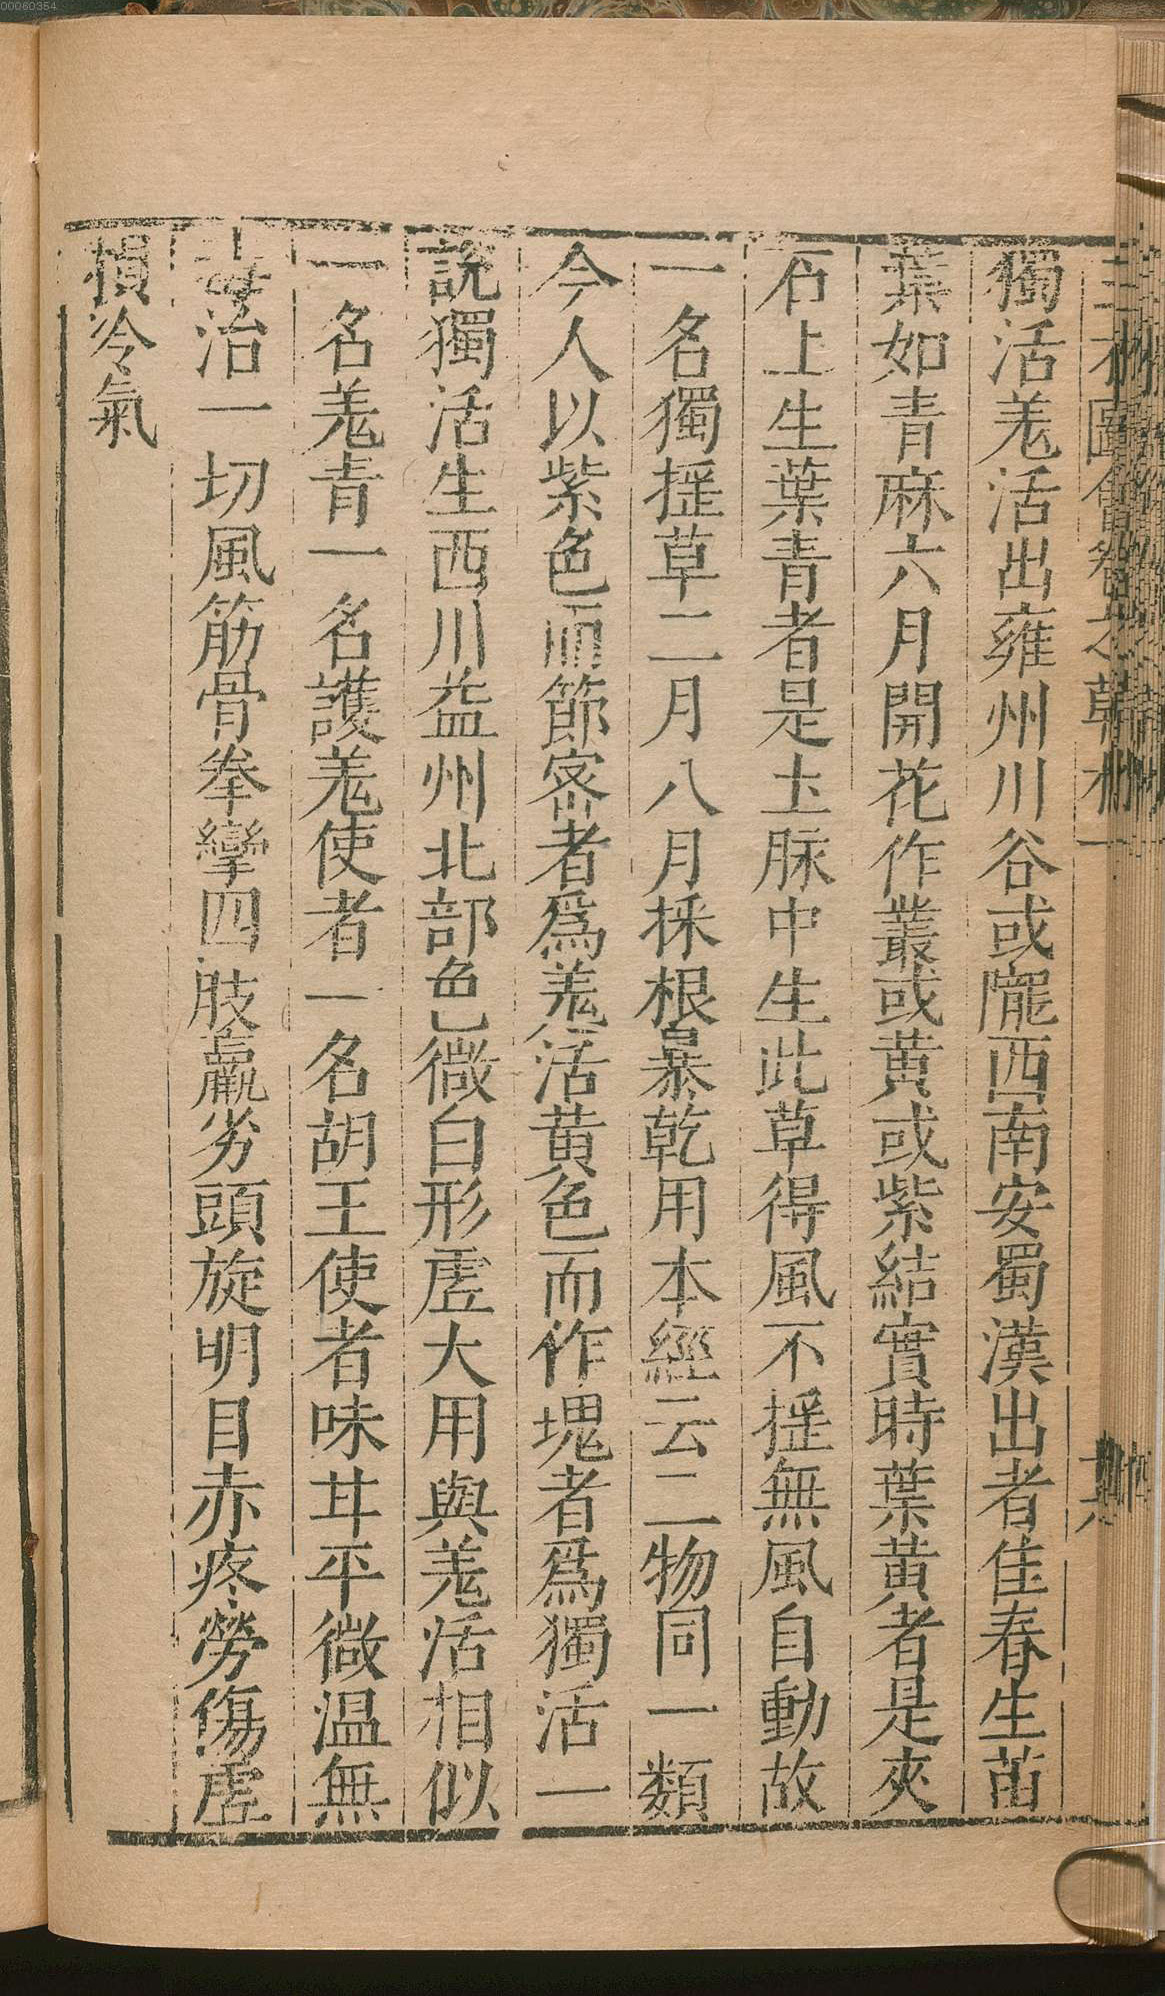 00060354
獨活羗活出雍州川谷或隴西南安蜀漢出者佳春生苗
葉如青麻六月開花作叢或黄或紫結實時葉黄者是夾
石上生葉青者是土脉中生此草得風不揺無風自動故
一名獨揺草二月八月採根暴乾用本經云二物同一類
今人以紫色而節密者爲羗活黄色而作塊者爲獨活一
説獨活生西川益州北部色微白形虗大用與羗活相似
一名羗青一名護羗使者一名胡王使者味甘平微温無
毒治一切風筋骨拳攣四肢羸劣頭旋明目赤疼勞傷虗
損冷氣